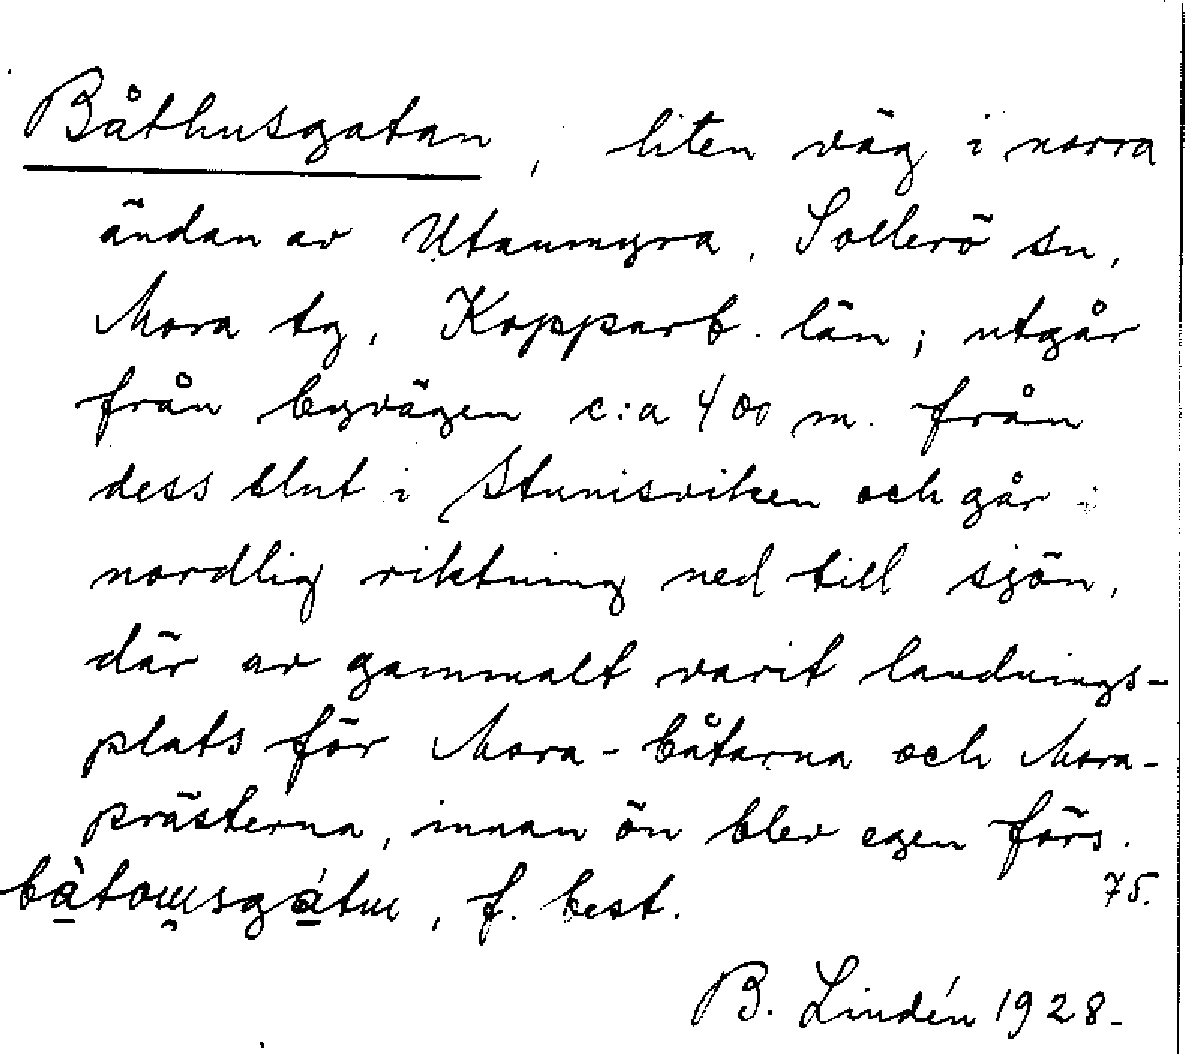 Båthusgatan, liten väg i norra
ändan av Utanmyra, Sollerö sn,
Mora tg, Kopparb. län; utgår
från byvägen c:a 400 m. från
dess slut i Stunisviken och går i
nordlig riktning ned till sjön,
där av gammalt varit landnings-
plats för Mora-båtarna och Mora-
prästerna, innan ön blev egen förs.
75.
f. best.
B. Lindén 1928.